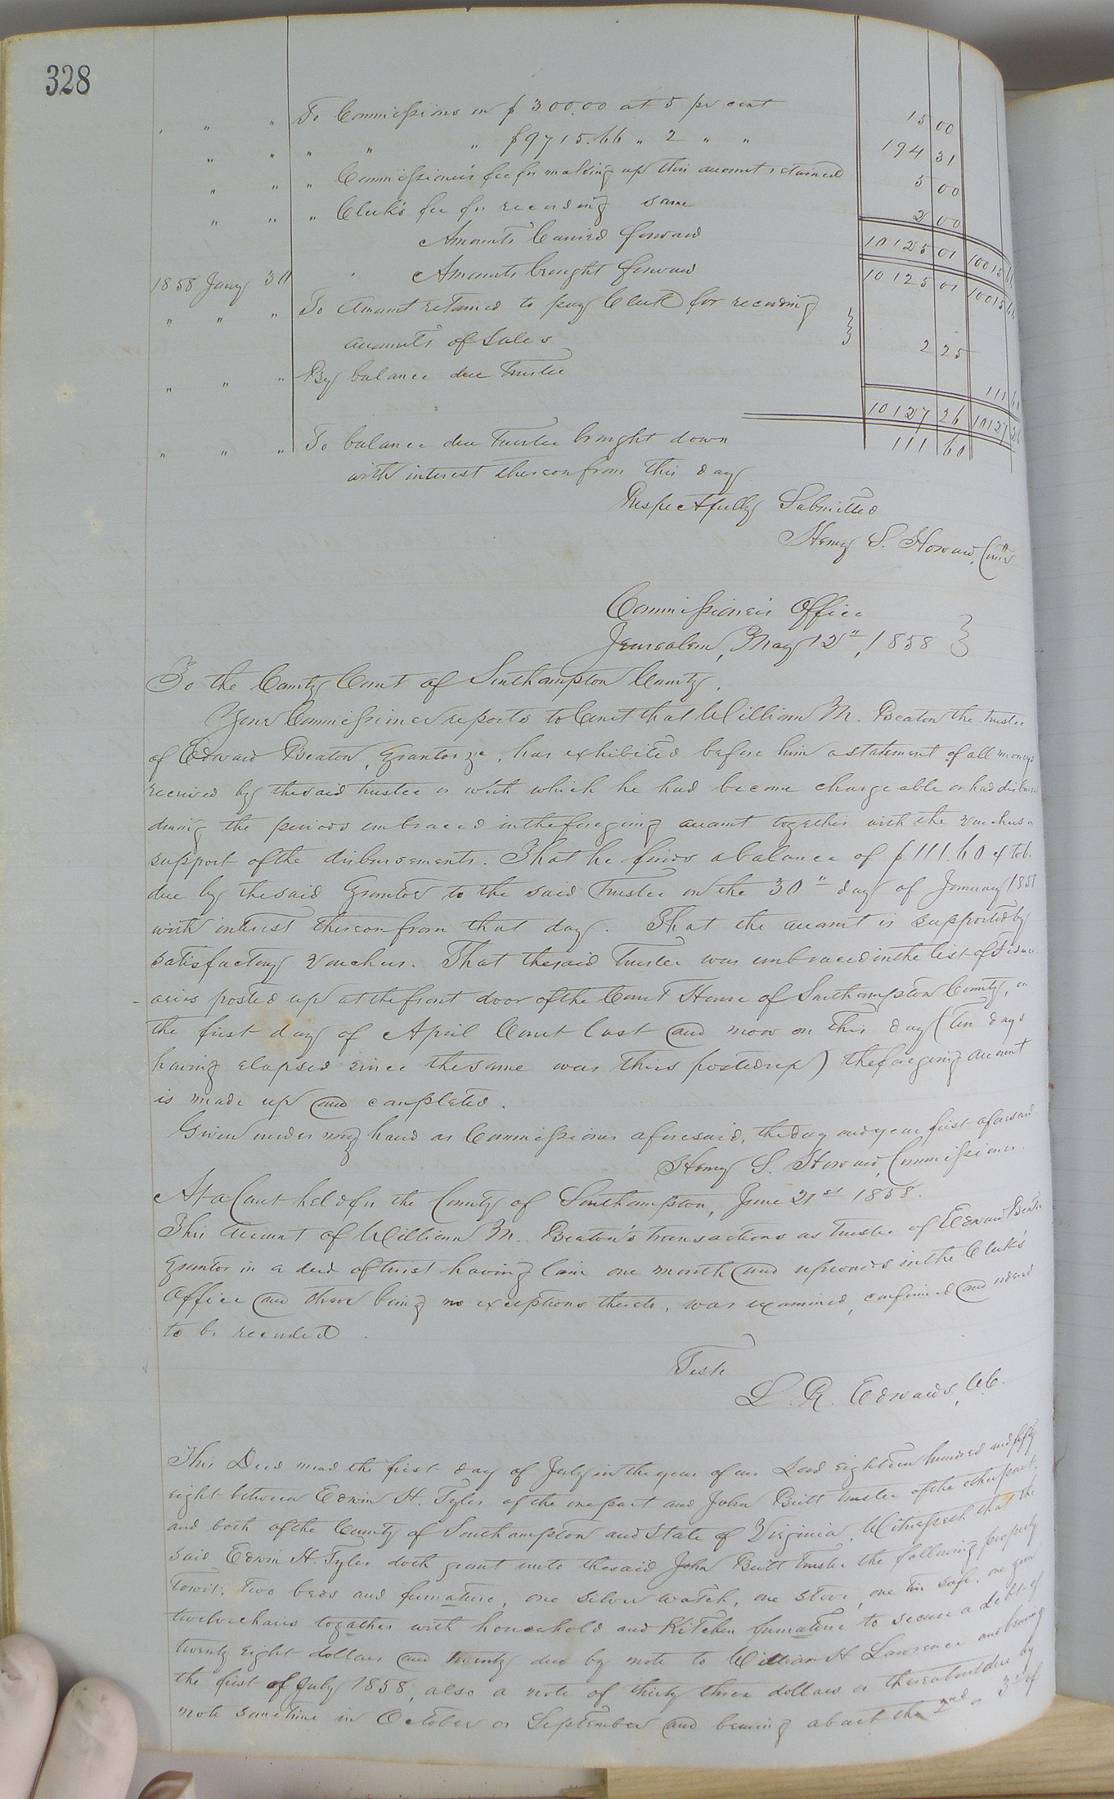 328
" " " To Commissions on $300.00 at 5 pr cent 15 00
" " " " " $9715.66 " 2 " " 194 31
" " " Commissioner's fee for making up this account retained 5 00
" " " Clerk's fee for recording same 2 00
Amounts Carried forward 10125 01 10015
1858 Jany 30 Amounts brought forward 10125 01 10015
" " " To Amount retained to pay Clerk for recording
accounts of Sales 2 25
" " " By balance due Trustee 111
10127 26 10127
" " " To balance due Trustee brought down 111 60
with interest thereon from this day
Respectfully Submitted
Henry S. Howard, Comr
Commissioner's Office
Jerusalem, May 12th, 1858
To the County Court of Southampton County,
Your Commissioner reports to Court that William M. Beaton the trustee
of Edward Beaton, Grantor &c, has exhibited before him a statement of all moneys
received by the said trustee or with which he had become chargeable or had disbursed
during the periods embraced in the foregoing account together with the vouchers in
support of the disbursements. That he finds a balance of $111.60 to be
due by the said Grantor to the said Trustee on the 30th day of January 1858
with interest thereon from that day. That the account is supported by
satisfactory vouchers. That the said Trustee was embraced in the list of fiduci-
aries posted up at the front door of the Court House of Southampton County, on
the first day of April Court last and now on this day (ten days
having elapsed since the same was thus posted up) the foregoing account
is made up and completed.
Given under my hand as Commissioner aforesaid, the day and year first aforesaid
Henry S. Howard, Commissioner.
At a Court held for the County of Southampton, June 21st 1858.
This Account of William M. Beaton's transactions as trustee of Edward Beaton
Grantor in a deed of trust having lain one month and upwards in the Clerk's
Office and there being no exceptions thereto, was examined, confirmed and ordered
to be recorded.
Teste
L. R. Edwards, C.C.
This Deed mad the first day of July in the year of our Lord eighteen hundred and fifty
eight between Edwin H. Tyler of the one part and John Britt trustee of the other part.
and both of the County of Southampton and State of Virginia. Witnesseth that the
said Edwin H. Tyler doth grant unto the said John Britt trustee the following property
towit; two beds and furnature, one silver watch, one stove, one tin safe, one gun
twelve chairs together with household and Kitchen furnature to secure a debt of
twenty eight dollars and twenty due by note to William H Lawrence and bearing
the first of July 1858, also a note of thirty three dollars or thereabout due by
note sometime in October or September and bearing about the 2nd or 3rd of